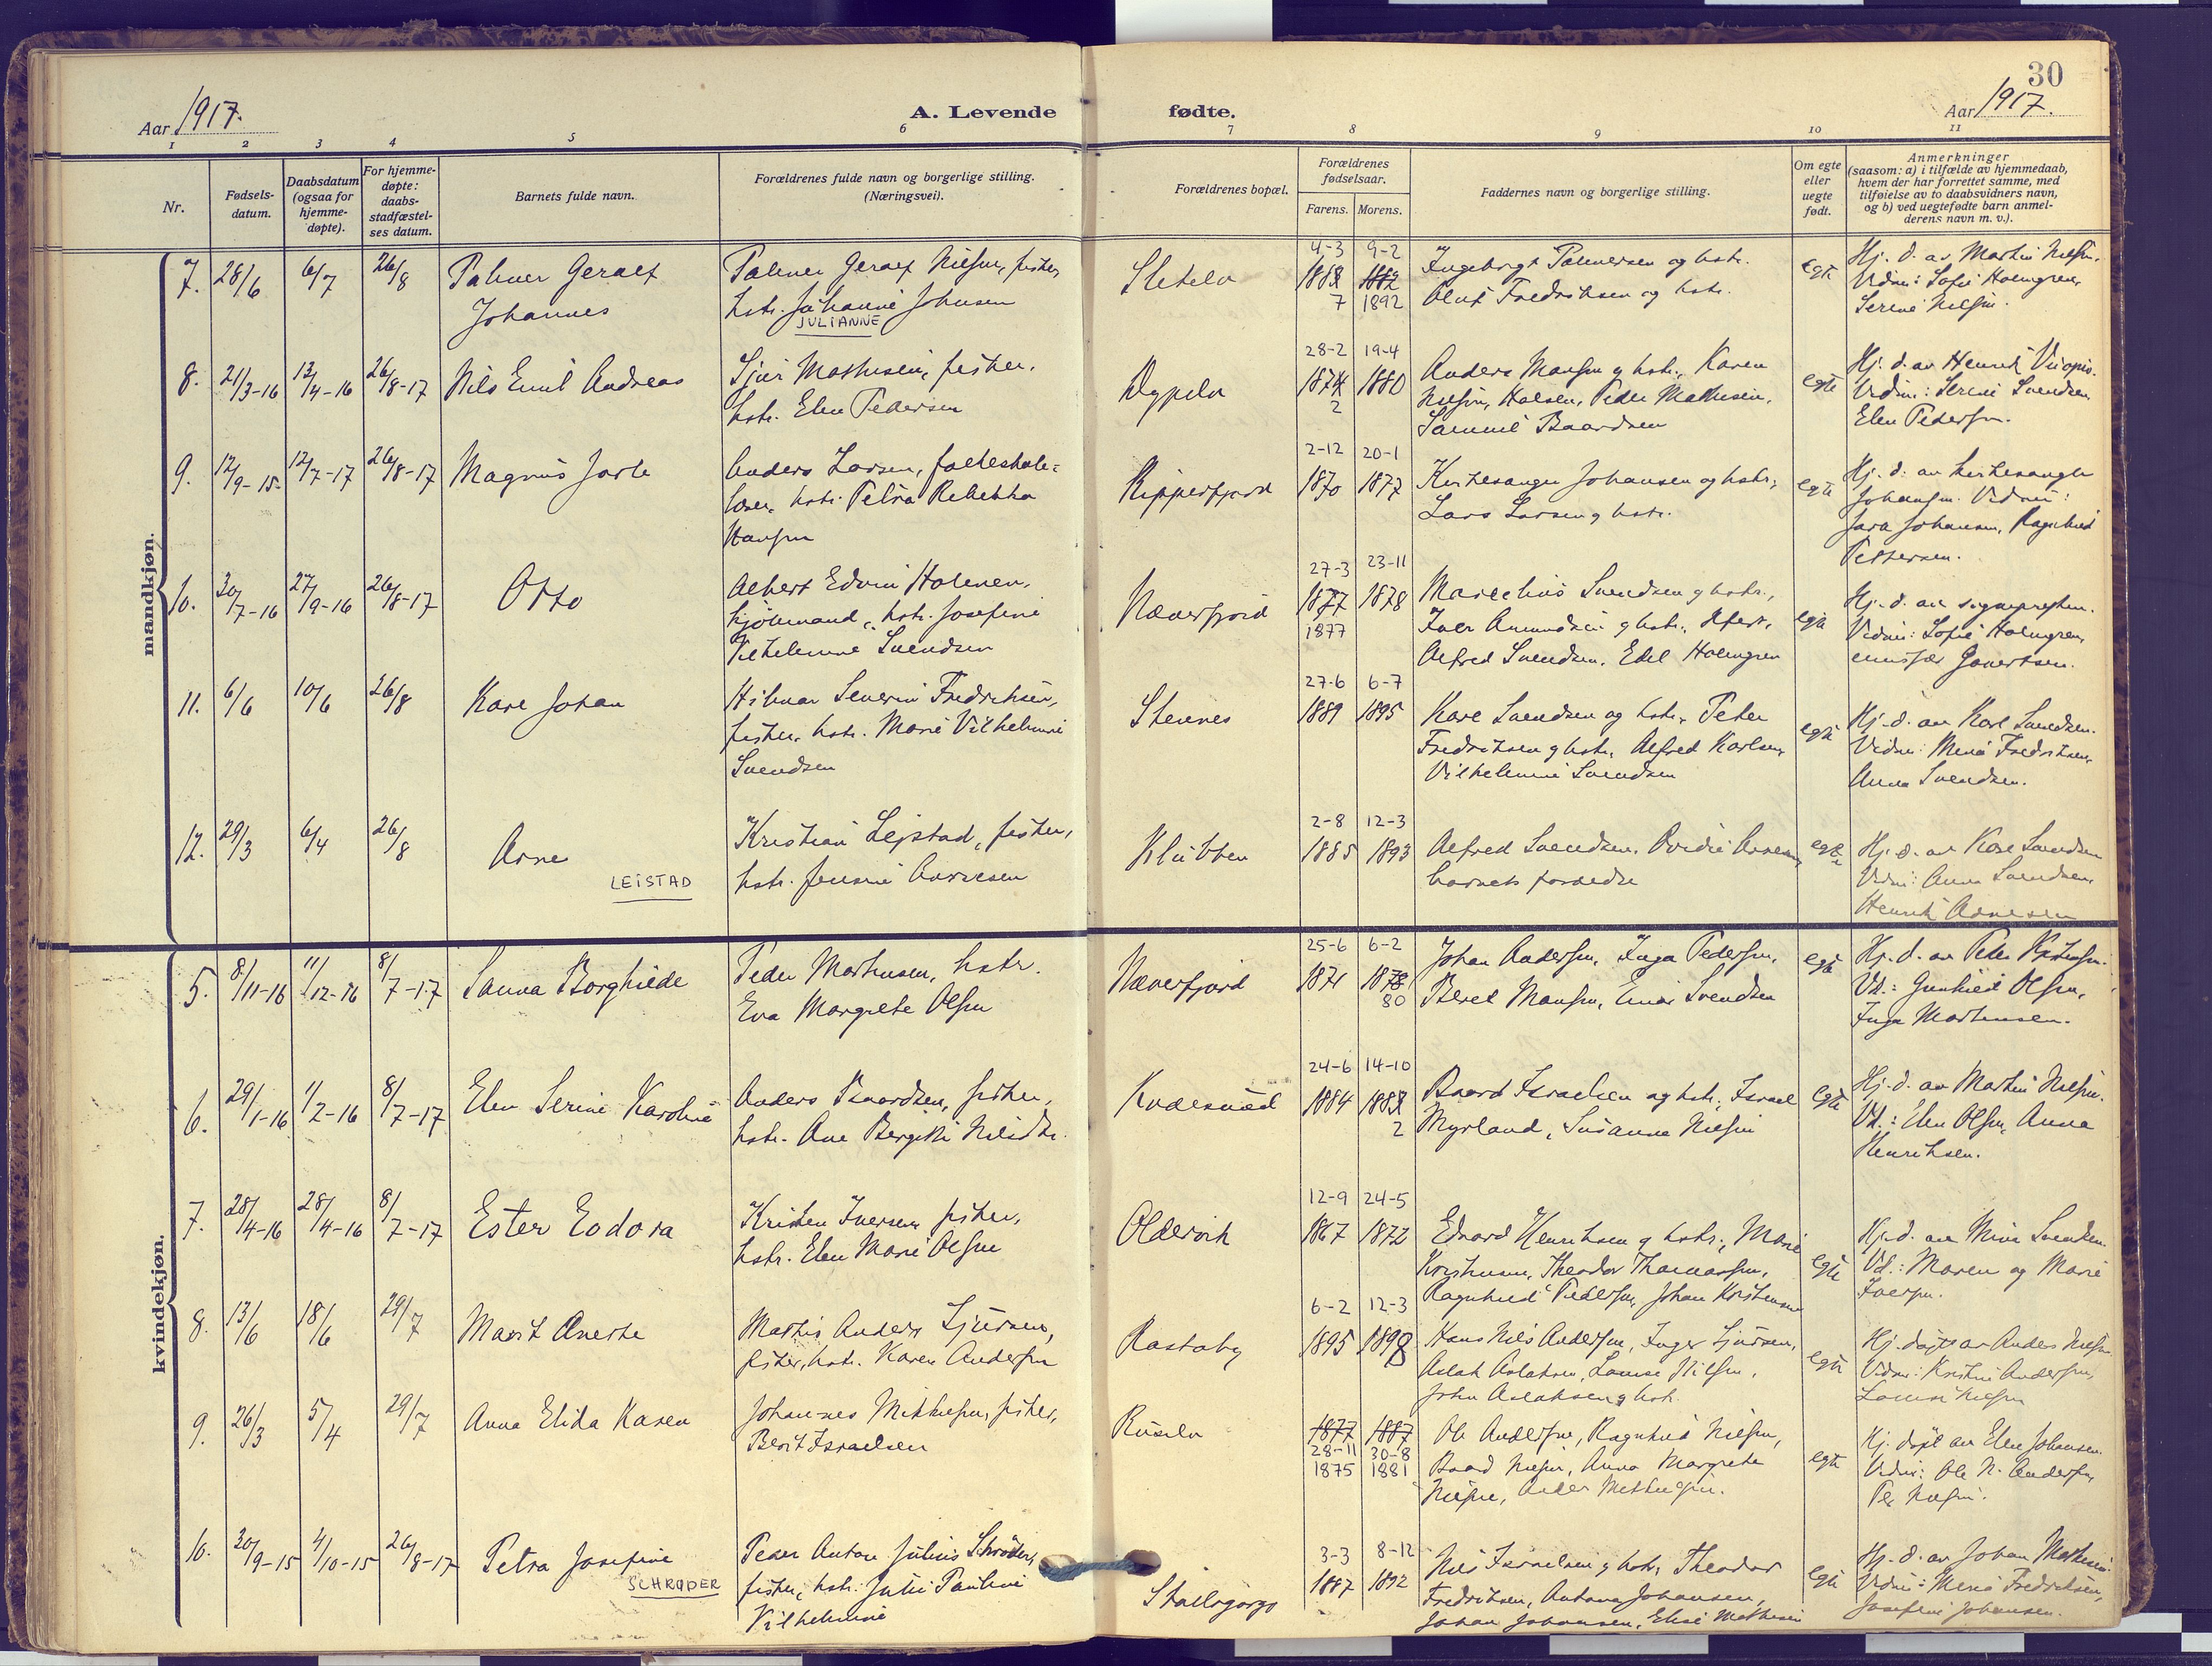 30
Aar 1917.
A. Levende fødte.
Aar 1917.
1 2 3 4 5 6 7 8 9 10 11
Nr.
Fødsels-
datum.
Daabsdatum
(ogsaa for
hjemme-
døpte).
For hjemme-
døpte:
daabs-
stadfæstel-
ses datum.
Barnets fulde navn.
Forældrenes fulde navn og borgerlige stilling.
(Næringsvei).
Forældrenes bopæl.
Forældrenes
fødselsaar.
Farens. Morens.
Faddernes navn og borgerlige stilling.
Om egte
eller
uegte
født.
Anmerkninger
(saasom: a) i tilfælde av hjemmedaab,
hvem der har forrettet samme, med
tilføielse av to daabsvidners navn,
og b) ved uegtefødte barn anmel-
derens navn m. v.).
mandkjøn.
7. 28/6 6/7 26/8
Palmer Geralf
Johannes
Palmer Geralf Nilsen, fisker,
hstr. Johanne Johnsen
JULIANNE
4-3 9-2
1888 1882
7 1892
Ingeborgt Palmersen og hstr.
Oluf Fredriksen og hstr.
egte
Hj. d. av Martin Nilsen.
Vidner: Sofie Holmgren,
Serine Nilsen.
8. 21/3-16 13/4-16 26/8-17
Nils Emil Andreas
Sjur Mathisen, fisker,
hstr. Elen Pedersen
28-2 19-4
1874 1880
2
Anders Hansen og hstr., Karen
Nilsen, Peder Mathisen,
Samuel Baardsen
egte
Hj. d. av Henrik
Vidner: Serine Svendsen,
Elen Pedersen.
9. 12/9-15 12/7-17 26/8-17
Magnus Jarle
Anders Larsen, folkeskole-
lærer, hstr. Petra Rebekka
Hansen
Repperfjord
2-12 20-1
1870 1877
Kirkesanger Johansen og hstr.,
Lars Larsen og hstr.
egte
Hj. d. av kirkesanger
Johansen. Vidner:
Sara Johansen, Ragnhild
Pettersen.
10. 30/7-16 27/9-16 26/8-17
Otto
Albert Edvin Holmen,
hstr. Josefine
Vilhelmine Svendsen
Næverfjord
27-3 23-11
1877 1878
1877
Svendsen og hstr.,
Iver Amundsen og hstr.,
Alfred Svendsen, Edel Holmgren
egte
Hj. d. av sognepresten.
Vidner: Sofie Holmgren,
11. 6/6 10/6 26/8
Kare Johan
Hilmar Severin Fredriksen,
fisker, hstr. Marie Vilhelmine
Svendsen
Stennes
27-6 6-7
1889 1895
Kare Svendsen og hstr., Peter
Fredriksen og hstr., Alfred Karlsen,
Vilhelmine Svendsen
egte
Hj. d. av Karl Svendsen.
Vidner: Mina Fredriksen,
Anna Svendsen.
12. 29/3 6/4 26/8
Arne
LEISTAD
Kristian Leistad, fisker,
hstr. Jensine
Klubben
2-8 12-3
1885 1893
Alfred Svendsen,
barnets forældre
egte
Hj. d. av Karl Svendsen
Vidner: Anna Svendsen,
Henrik Arnesen
kvindekjøn.
5. 8/11-16 11/12-16 8/7-17
Sanna Borghilde
Peder Mathisen, hstr.
Eva Margrete Olsen
Næverfjord
25-6 6-2
1871 1878
80
Johan Andersen, Inga Pedersen,
Beret Hansen, Einar Svendsen
egte
Vd.: Gunhild Olsen,
Inga Mathisen.
6. 29/1-16 1/2-16 8/7-17
Elen Serine Karoline
Anders Baardsen, fisker,
hstr. Ane Bergitte Nilsdtr.
Kvalsund
24-6 14-10
1884 1883
2
Baard Israelsen og hstr., Israel
Myrland, Susanne Nilsen
egte
Hj. d. av Martin Nilsen.
Vd.: Elen Olsen, Anna
Henriksen.
7. 28/4-16 28/4-16 8/7-17
Ester Eodora
Kristen Iversen, fisker,
hstr. Elen Marie Olsen
Oldervik
12-9 24-5
1867 1872
Edvard Henriksen og hstr., Marie
Theodor Thomassen,
Ragnhild Pedersen, Johan Kristensen
egte
Hj. d. av Mina Svendsen.
Vd.: Maren og Marie
Iversen.
8. 13/6 18/6 29/7
Marit Anette
Mathis Anders Sjursen,
fisker, hstr. Karen Andersen
Rastaby
6-2 12-3
1895 1898
Hans Nils Andersen, Inger Sjursen,
Aslak Aslaksen, Lovise Nilsen,
John Aslaksen og hstr.
egte
Hj. døpt av Anders Nilsen
Vidner: Kristine Andersen,
Lovise Nilsen
9. 26/3 5/4 29/7
Anna Elida Karen
Johannes Mikkelsen, fisker,
Berit Israelsen
1877 1887
28-11 30-8
1875 1881
Ole Andersen, Ragnhild Nilsen,
Baard Nilsen, Anna Margrete
Nilsen, Mikkelsen.
egte
Hj. døpt av Elen Johansen.
Vidner: Ole N. Andersen,
Per Nilsen.
10. 30/9-15 4/10-15 26/8-17
Petra Josefine
SCHRØDER
Peder Anton Julius Schrøder,
fisker, hstr. Julie Pauline
Vilhelmine
3-3 8-12
1887 1892
Nils Israelsen og hstr., Theodor
Fredriksen, Antona Johansen,
Johan Johansen, Elise Mathisen
egte
Hj. d. av Johan Mathisen.
Vidner: Mina Fredriksen,
Josefine Johansen.